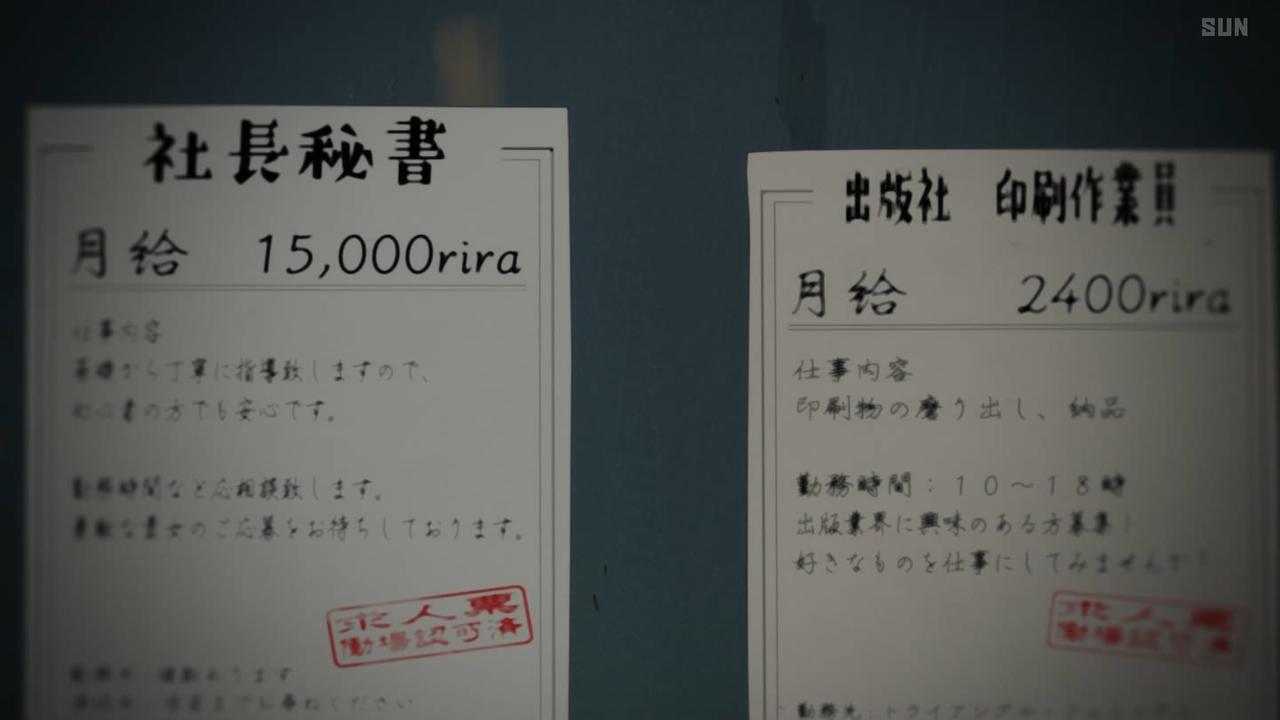 SUN
社長秘書
月給 15,000rira
仕事内容
基礎から丁寧に指導致しますので、
初心者の方でも安心です。
勤務時間など応相談致します。
素敵な貴女のご応募をお待ちしております。
求人票
働場認可済
出版社 印刷作業員
月給 2400rira
仕事内容
印刷物の磨り出し、納品
勤務時間：１０～１８時
出版業界に興味のある方募集！
好きなものを仕事にしてみませんか
求人票
働場認可済
勤務先：トライアングル・